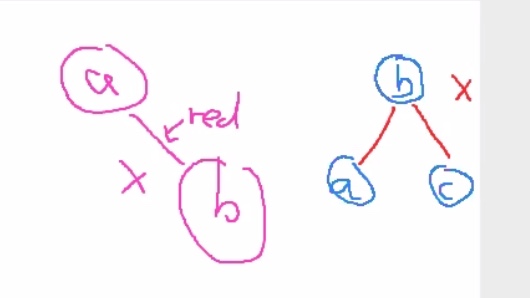 a
red
X
b
b
X
a
c